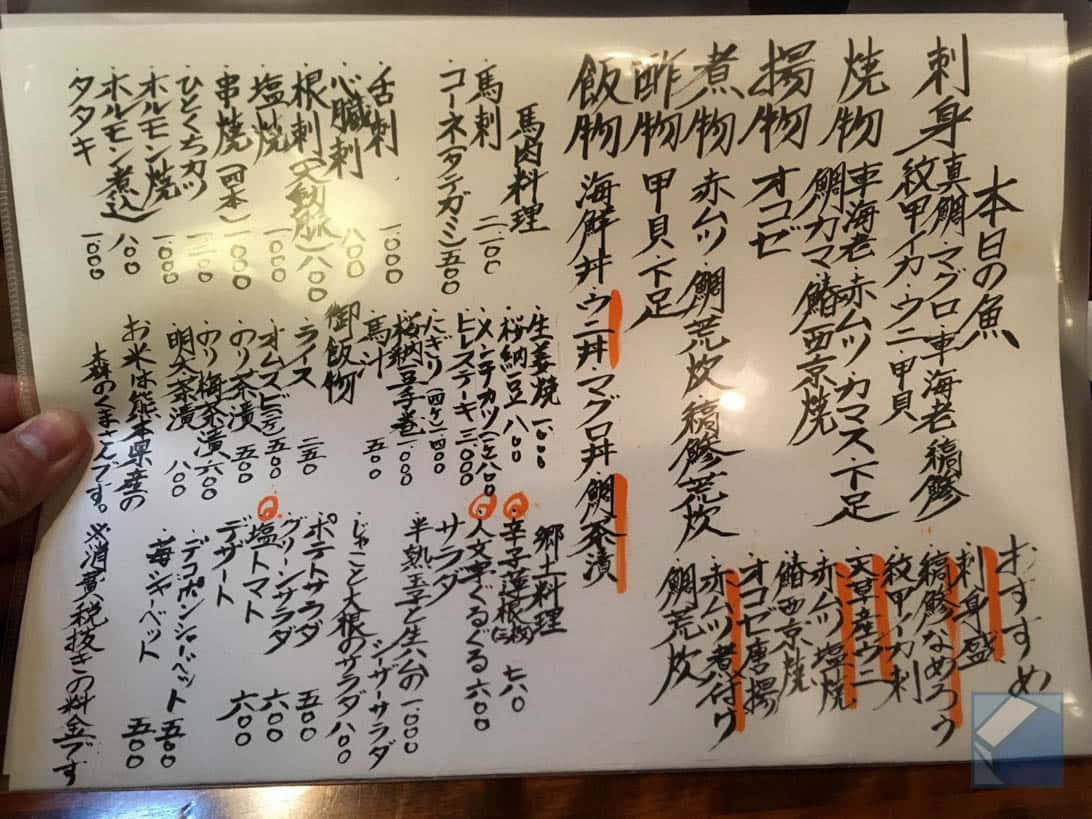 本日の魚
刺身 真鯛・マグロ・車海老・稿鯵
紋甲イカ・ウニ・甲貝
焼物 車海老・赤ムツ・カマス・下足
鯛カマ 鰆西京焼
揚物 オコゼ
煮物 赤ムツ 鯛荒炊 稿鯵荒炊
酢物 甲貝・下足
飯物 海鮮丼・ウニ丼・マグロ丼・鯛茶漬
おすすめ
・刺身盛
・稿鯵なめろう
・紋甲イカ刺
・天草産ウニ
・赤ムツ塩焼
・鰆西京焼
・オコゼ唐揚
・赤ムツ煮付け
・鯛荒炊
馬肉料理
・馬刺 二、一〇〇
・コーネ(タテガミ) 五〇〇
・舌刺 一、〇〇〇
・心臓刺 八〇〇
・根刺(大動脈) 八〇〇
・塩焼 一、〇〇〇
・串焼(四本) 一、〇〇〇
・ひとくちカツ
・ホルモン焼 一、〇〇〇
・ホルモン煮込 八〇〇
・タタキ 一、〇〇〇
・生姜焼 一、〇〇〇
・桜納豆 八〇〇
・メンチカツ(二ケ) 八〇〇
・ヒレステーキ 三、〇〇〇
・にぎり(四ケ) 一、四〇〇
・桜納豆手巻 一、〇〇〇
・馬汁 五〇〇
御飯物
・ライス 二五〇
・オムスビ(二ケ) 五〇〇
・のり茶漬 五〇〇
・のり梅茶漬 六〇〇
・明太茶漬 八〇〇
お米は熊本県産の
森のくまさんです。
郷土料理
・辛子蓮根 七八〇
・人文字ぐるぐる 六〇〇
サラダ
・半熟玉子と生ハムの
シーザーサラダ 一、〇〇〇
・じゃこと大根のサラダ 八〇〇
・ポテトサラダ 五〇〇
・グリーンサラダ 六〇〇
・塩トマト 六〇〇
デザート
・デコポンシャーベット 五〇〇
・苺シャーベット 五〇〇
※消費税抜きの料金です